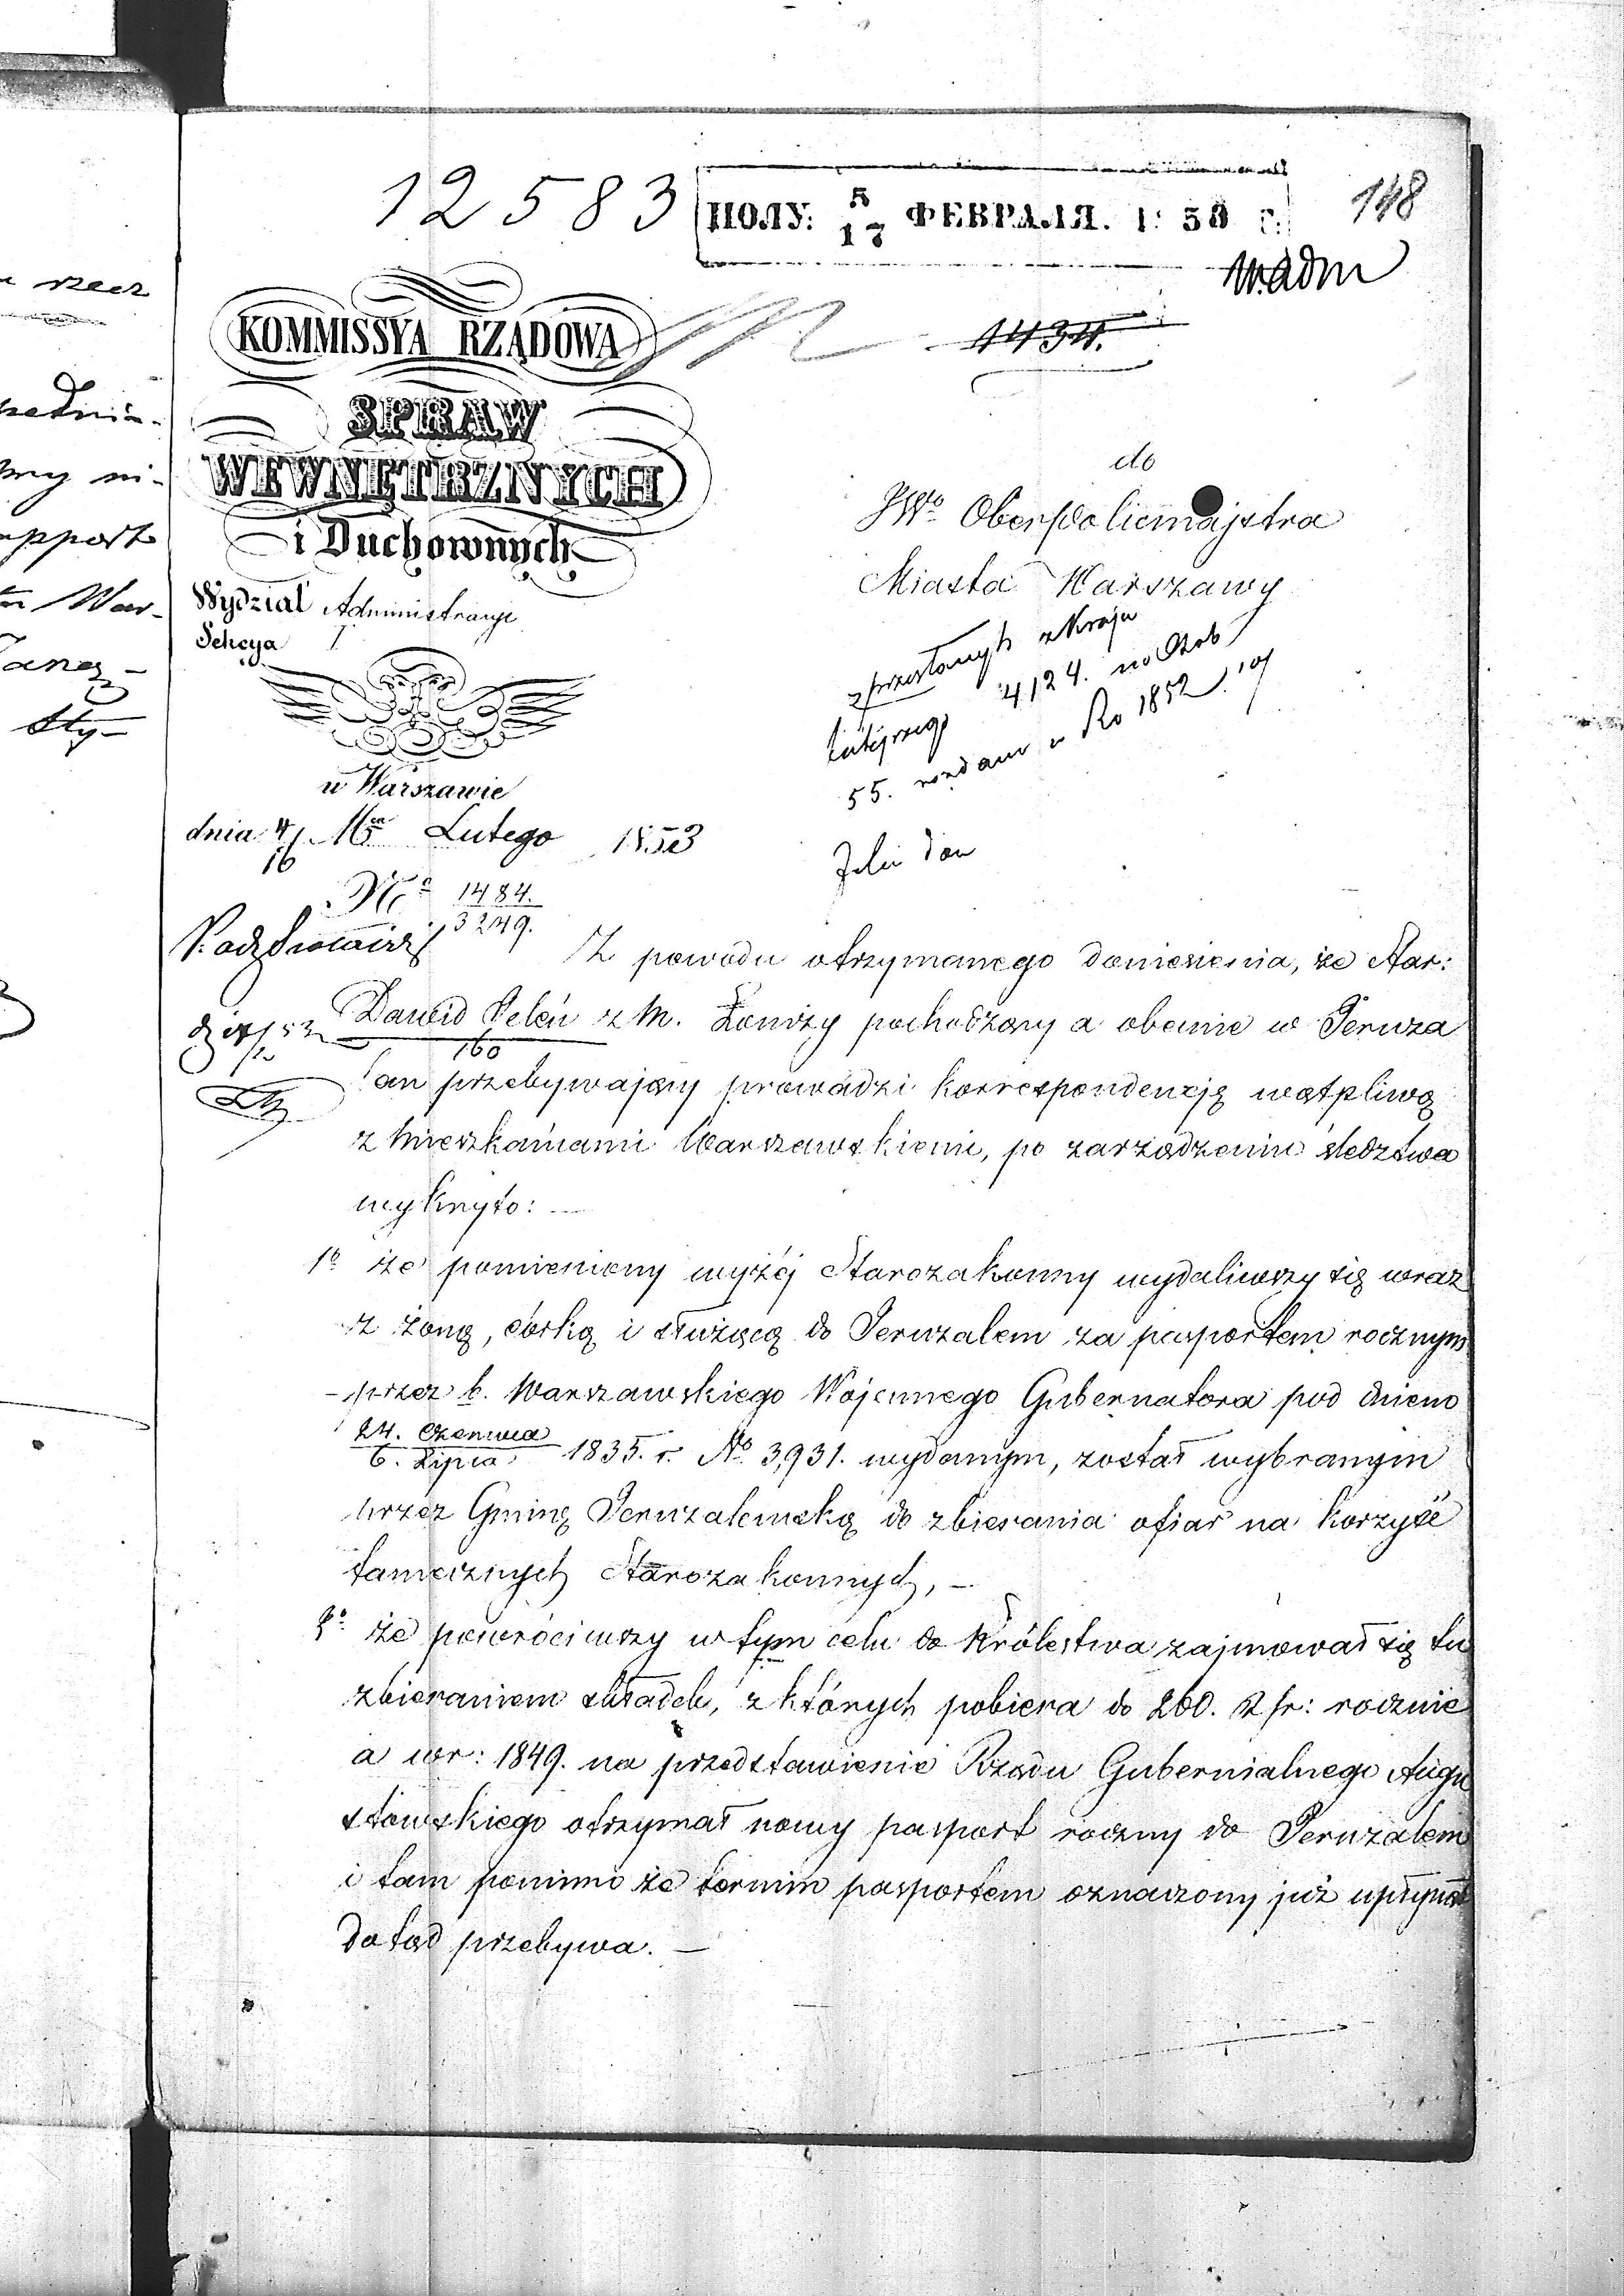 12583
ПОЛУ: 5/17 ФЕВРАЛЯ. 1 53 г.
148
W. adm
1434.
KOMMISSYA RZĄDOWA
SPRAW
WEWNĘTRZNYCH
i Duchownych
Wydział Administracyi
Sekcya I
w Warszawie
dnia 4/16 Mca Lutego 1853
No 1484./3249.
do
JWo Oberpolicmajstra
Miasta Warszawy
z kraju
4124. na Osob
55. w Ro 1852
Z powodu otrzymanego doniesienia, że Star:
Dawid Peleń z M. Łomży pochodzący a obecnie w Jeruza
160
lem przebywający prowadzi korrespondencję wątpliwą
z Mieszkańcami Warszawskiemi, po zarządzeniu śledztwa
wykryto: —
1o że pomieniony wyżéj Starozakonny wydaliwszy się wraz
z żoną, córką i służącą do Jeruzalem za pasportem rocznym
przez b. Warszawskiego Wojennego Gubernatora pod dniem
24. Czerwca/6. Lipca 1835. r. No 3,931. wydanym, został wybranym
przez Gminę Jeruzalemską do zbierania ofiar na korzyść
tamecznych Starozakonnych, —
2o że powróciwszy w tym celu do Królestwa zajmował się tu
zbieraniem składek, z których pobiera do 200. R sr: rocznie
a wr: 1849. na przedstawienie Rządu Gubernialnego Augu
stowskiego otrzymał nowy pasport roczny do Jeruzalem
i tam pomimo że termin pasportem oznaczony już upłynął
dotąd przebywa. —
rzecz
pełnia-
ni-
apport
War-
Sty-